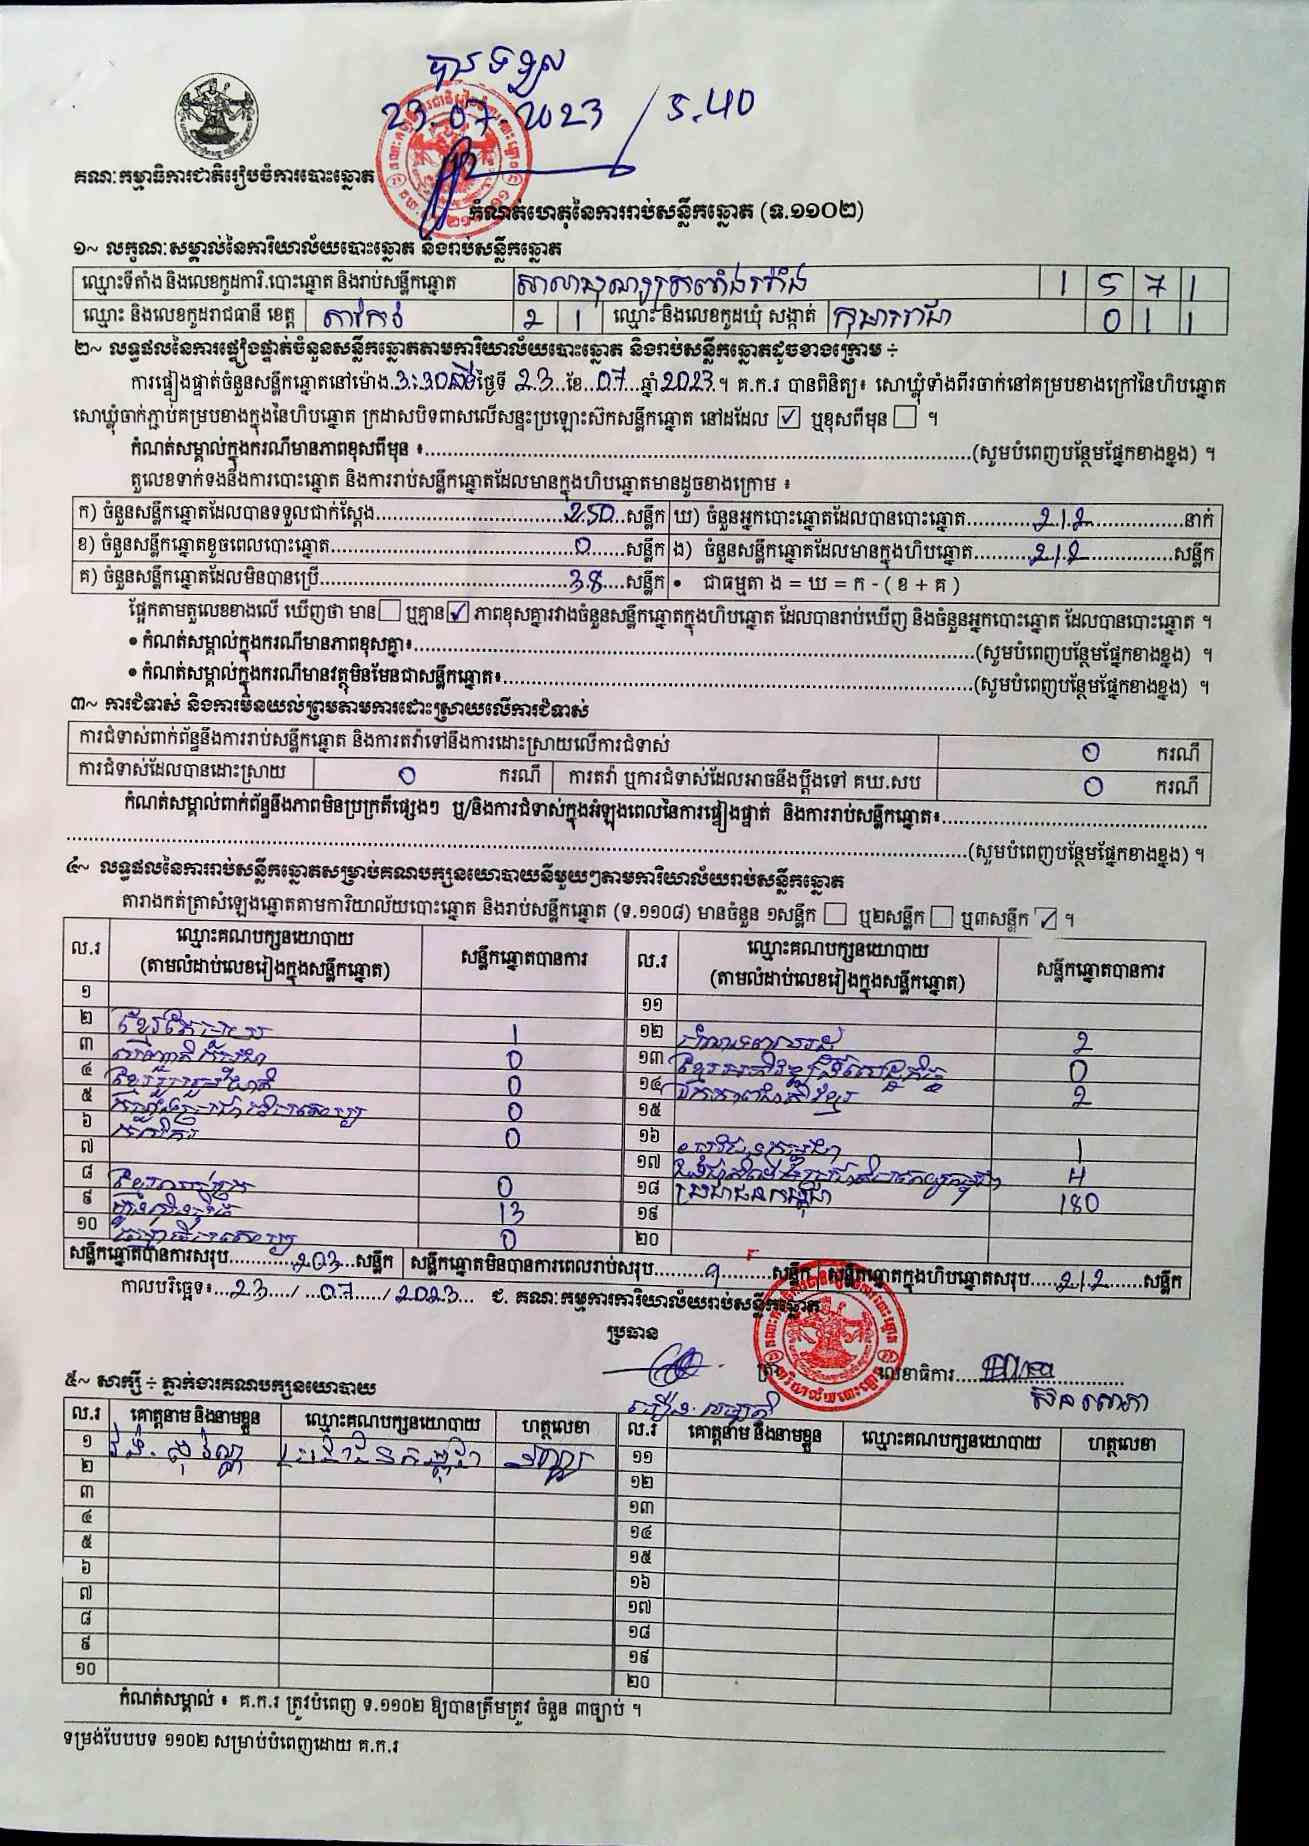 បានទទួល
23.07.2023 / 5.40
គណៈកម្មាធិការជាតិរៀបចំការបោះឆ្នោត
កំណត់ហេតុនៃការរាប់សន្លឹកឆ្នោត (ទ.១១០២)
១~ លក្ខណៈសម្គាល់នៃការិយាល័យបោះឆ្នោត និងរាប់សន្លឹកឆ្នោត
ឈ្មោះទីតាំង និងលេខកូដការិ.បោះឆ្នោត និងរាប់សន្លឹកឆ្នោត 1 5 7 1
ឈ្មោះ និងលេខកូដរាជធានី ខេត្ត តាកែវ 2 1 ឈ្មោះ និងលេខកូដឃុំ សង្កាត់ កុមាររាជា 0 1 1
២~ លទ្ធផលនៃការផ្ទៀងផ្ទាត់ចំនួនសន្លឹកឆ្នោតតាមការិយាល័យបោះឆ្នោត និងរាប់សន្លឹកឆ្នោតដូចខាងក្រោម ÷
ការផ្ទៀងផ្ទាត់ចំនួនសន្លឹកឆ្នោតនៅម៉ោង.3:30នាទីថ្ងៃទី 23...ខែ.07...ឆ្នាំ2023.។ គ.ក.រ បានពិនិត្យ៖ សោឃ្លុំទាំងពីរចាក់នៅគម្របខាងក្រៅនៃហិបឆ្នោត
សោឃ្លុំចាក់ភ្ជាប់គម្របខាងក្នុងនៃហិបឆ្នោត ក្រដាសបិទពាសលើសន្ទះប្រឡោះស៊កសន្លឹកឆ្នោត នៅដដែល ☑ ឬខុសពីមុន ☐ ។
កំណត់សម្គាល់ក្នុងករណីមានភាពខុសពីមុន ៖..........(សូមបំពេញបន្ថែមផ្នែកខាងខ្នង) ។
តួលេខទាក់ទងនឹងការបោះឆ្នោត និងការរាប់សន្លឹកឆ្នោតដែលមានក្នុងហិបឆ្នោតមានដូចខាងក្រោម ៖
ក) ចំនួនសន្លឹកឆ្នោតដែលបានទទួលជាក់ស្តែង..........250....សន្លឹក ឃ) ចំនួនអ្នកបោះឆ្នោតដែលបានបោះឆ្នោត..........212..........នាក់
ខ) ចំនួនសន្លឹកឆ្នោតខូចពេលបោះឆ្នោត..........0......សន្លឹក ង) ចំនួនសន្លឹកឆ្នោតដែលមានក្នុងហិបឆ្នោត..........212..........សន្លឹក
គ) ចំនួនសន្លឹកឆ្នោតដែលមិនបានប្រើ..........38....សន្លឹក • ជាធម្មតា ង = ឃ = ក - ( ខ + គ )
ផ្អែកតាមតួលេខខាងលើ ឃើញថា មាន☐ ឬគ្មាន☑ ភាពខុសគ្នារវាងចំនួនសន្លឹកឆ្នោតក្នុងហិបឆ្នោត ដែលបានរាប់ឃើញ និងចំនួនអ្នកបោះឆ្នោត ដែលបានបោះឆ្នោត ។
• កំណត់សម្គាល់ក្នុងករណីមានភាពខុសគ្នា៖..........(សូមបំពេញបន្ថែមផ្នែកខាងខ្នង) ។
• កំណត់សម្គាល់ក្នុងករណីមានវត្ថុមិនមែនជាសន្លឹកឆ្នោត៖..........(សូមបំពេញបន្ថែមផ្នែកខាងខ្នង) ។
៣~ ការជំទាស់ និងការមិនយល់ព្រមតាមការដោះស្រាយលើការជំទាស់
ការជំទាស់ពាក់ព័ន្ធនឹងការរាប់សន្លឹកឆ្នោត និងការតវ៉ាទៅនឹងការដោះស្រាយលើការជំទាស់ 0 ករណី
ការជំទាស់ដែលបានដោះស្រាយ 0 ករណី ការតវ៉ា ឬការជំទាស់ដែលអាចនឹងប្តឹងទៅ គឃ.សប 0 ករណី
កំណត់សម្គាល់ពាក់ព័ន្ធនឹងភាពមិនប្រក្រតីផ្សេងៗ ឬ/និងការជំទាស់ក្នុងអំឡុងពេលនៃការផ្ទៀងផ្ទាត់ និងការរាប់សន្លឹកឆ្នោត៖..........
..........(សូមបំពេញបន្ថែមផ្នែកខាងខ្នង) ។
៤~ លទ្ធផលនៃការរាប់សន្លឹកឆ្នោតសម្រាប់គណបក្សនយោបាយនីមួយៗតាមការិយាល័យរាប់សន្លឹកឆ្នោត
តារាងកត់ត្រាសំឡេងឆ្នោតតាមការិយាល័យបោះឆ្នោត និងរាប់សន្លឹកឆ្នោត (ទ.១១០៨) មានចំនួន ១សន្លឹក ☐ ឬ២សន្លឹក ☐ ឬ៣សន្លឹក ☑ ។
ល.រ ឈ្មោះគណបក្សនយោបាយ (តាមលំដាប់លេខរៀងក្នុងសន្លឹកឆ្នោត) សន្លឹកឆ្នោតបានការ ល.រ ឈ្មោះគណបក្សនយោបាយ (តាមលំដាប់លេខរៀងក្នុងសន្លឹកឆ្នោត) សន្លឹកឆ្នោតបានការ
១ ១១
២ 1 ១២ 2
៣ 0 ១៣ 0
៤ ខ្មែររួបរួមជាតិ 0 ១៤ 2
៥ 0 ១៥
៦ កសិករ 0 ១៦ 1
៧ ១៧ 4
៨ 0 ១៨ ប្រជាជនកម្ពុជា 180
៩ ហ្វ៊ុនស៊ិនប៉ិច 13 ១៩
១០ 0 ២០
សន្លឹកឆ្នោតបានការសរុប..........203...សន្លឹក សន្លឹកឆ្នោតមិនបានការពេលរាប់សរុប..........9..........សន្លឹក សន្លឹកឆ្នោតក្នុងហិបឆ្នោតសរុប.....212......សន្លឹក
កាលបរិច្ឆេទ៖...23..../...07...../2023... ជ. គណៈកម្មការការិយាល័យរាប់សន្លឹកឆ្នោត
ប្រធាន
លេខាធិការ..........
៥~ សាក្សី ÷ ភ្នាក់ងារគណបក្សនយោបាយ
ល.រ គោត្តនាម និងនាមខ្លួន ឈ្មោះគណបក្សនយោបាយ ហត្ថលេខា ល.រ គោត្តនាម និងនាមខ្លួន ឈ្មោះគណបក្សនយោបាយ ហត្ថលេខា
១ ប្រជាជនកម្ពុជា ១១
២ ១២
៣ ១៣
៤ ១៤
៥ ១៥
៦ ១៦
៧ ១៧
៨ ១៨
៩ ១៩
១០ ២០
កំណត់សម្គាល់ ៖ គ.ក.រ ត្រូវបំពេញ ទ.១១០២ ឱ្យបានត្រឹមត្រូវ ចំនួន ៣ច្បាប់ ។
ទម្រង់បែបបទ ១១០២ សម្រាប់បំពេញដោយ គ.ក.រ